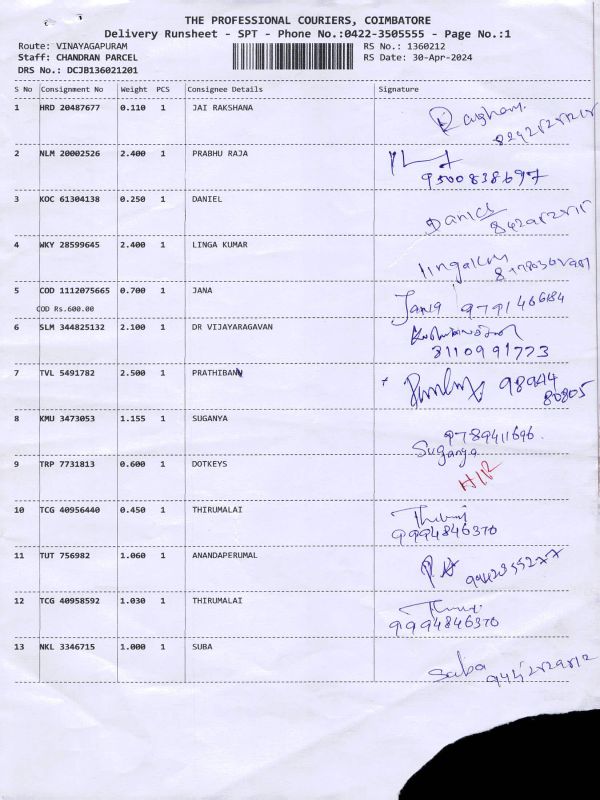 THE PROFESSIONAL COURIERS, COIMBATORE
Delivery Runsheet - SPT - Phone No.:0422-3505555 - Page No.:1
Route: VINAYAGAPURAM RS No.: 1360212
Staff: CHANDRAN PARCEL RS Date: 30-Apr-2024
DRS No.: DCJB136021201
S No Consignment No Weight PCS Consignee Details Signature
1 HRD 20487677 0.110 1 JAI RAKSHANA
2 NLM 20002526 2.400 1 PRABHU RAJA
9500838697
3 KOC 61304138 0.250 1 DANIEL
4 WKY 28599645 2.400 1 LINGA KUMAR
5 COD 1112075665 0.700 1 JANA Jana 9791466184
COD Rs.600.00
6 SLM 344825132 2.100 1 DR VIJAYARAGAVAN
8110991773
7 TVL 5491782 2.500 1 PRATHIBAN 98944
80805
8 KMU 3473053 1.155 1 SUGANYA
9789411696
Suganya
9 TRP 7731813 0.600 1 DOTKEYS
10 TCG 40956440 0.450 1 THIRUMALAI
9994846370
11 TUT 756982 1.060 1 ANANDAPERUMAL
12 TCG 40958592 1.030 1 THIRUMALAI
9994846370
13 NKL 3346715 1.000 1 SUBA